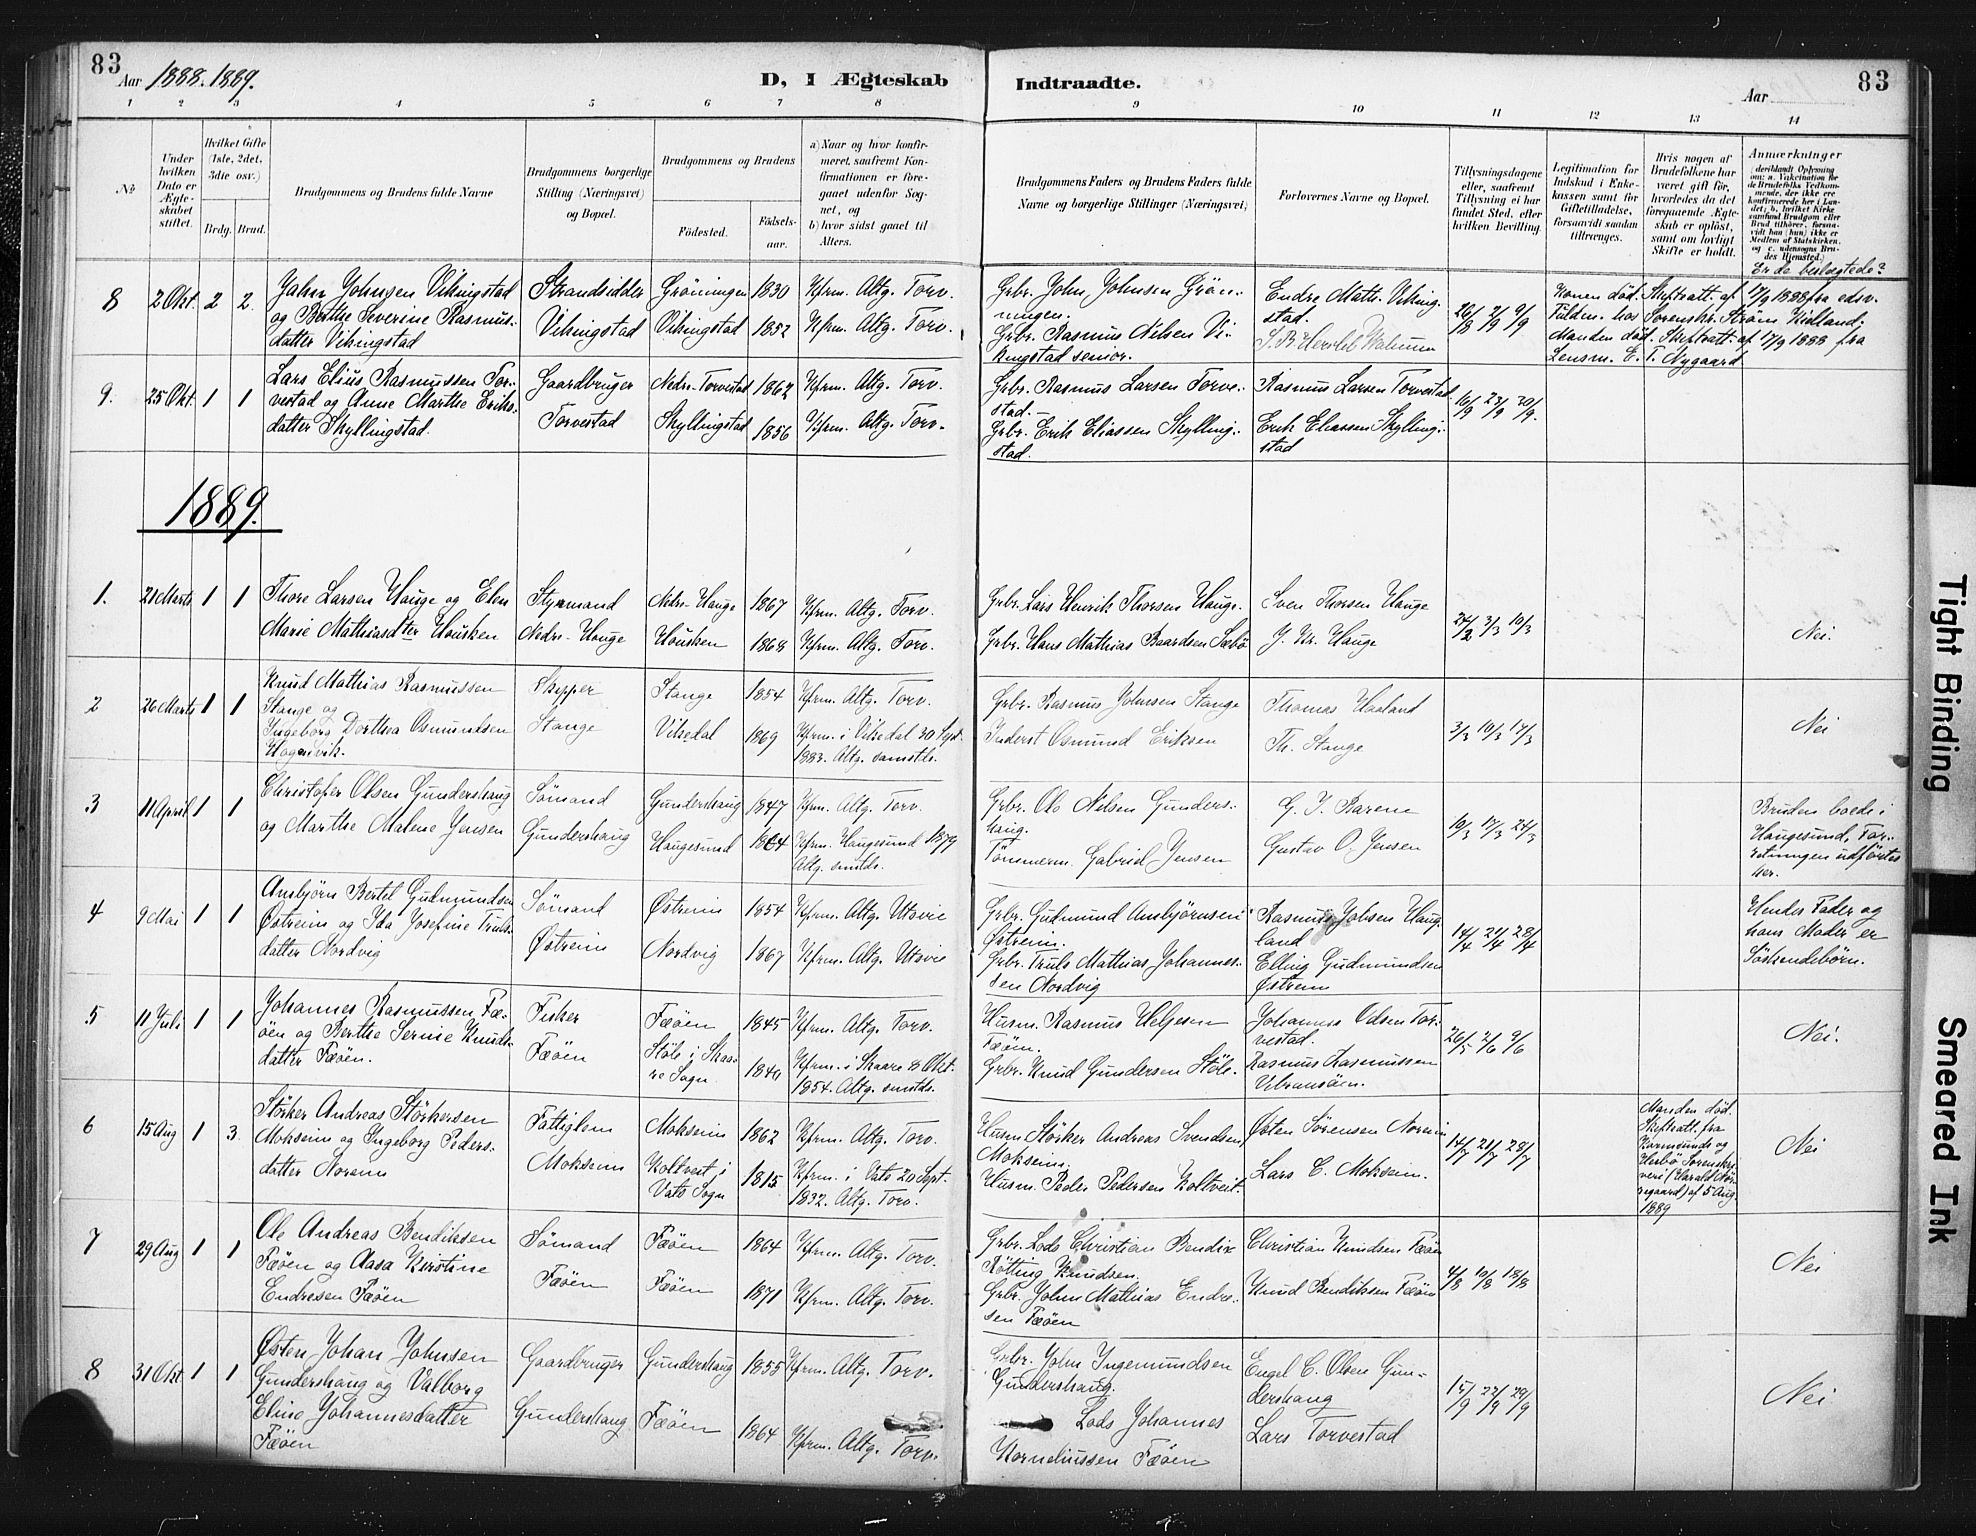 83
Aar 1888. 1889.
D, I Ægteskab
Indtraadte.
Aar
83
1 2 3 4 5 6 7 8 9 10 11 12 13 14
No
Under hvilken Dato er Ægteskabet stiftet.
Hvilket Gifte (1ste, 2det, 3die osv.)
Brdg. Brud.
Brudgommens og Brudens fulde Navne
Brudgommens borgerlige Stilling (Næringsvei) og Bopæl.
Brudgommens og Brudens
Fødested.
Fødselsaar.
a) Naar og hvor konfirmeret, saafremt Konfirmationen er foregaaet udenfor Sognet, og
b) hvor sidst gaaet til Alters.
Brudgommens Faders og Brudens Faders fulde Navne og borgerlige Stillinger (Næringsvei)
Forlovernes Navne og Bopæl.
Tillysningsdagene eller, saafremt Tillysning ei har fundet Sted, efter hvilken Bevilling.
Legitimation for Indskud i Enkekassen samt for Giftetilladelse, forsaavidt saadan tiltrænges.
Hvis nogen af Brudefolkene har været gift før, hvorledes da det foregaaende Ægteskab er opløst, samt om lovligt Skifte er holdt.
Anmærkninger
(deriblandt Oplysning om: a. Vakcination for de Brudefolks Vedkommende, der ikke ere konfirmerede her i Landet; b. hvilket Kirkesamfund Brudgom eller Brud tilhører, forsaavidt han (hun) ikke er Medlem af Statskirken, og c. udensogns Brudes Hjemsted.)
Er de beslægtede?
8 2 Okt. 2 2.
Jahn Johnsen Vikingstad
og Berthe Severine Rasmus-
datter Vikingstad
Strandsidder
Vikingstad
Grönningen 1830
Vikingstad 1852
Kfrm. Altg. Torv.
Kfrm. Altg. Torv.
Grbr. John Johnsen Grön-
ningen.
Grbr. Rasmus Nilsen Vi-
kingstad senior.
Endre Math. Viking-
stad.
26/8 2/9 9/9
Konen död. Skiftratt. af 17/9 1888 fra edsv.
Fuldm. hos Sorenskr. Ström Kidland;
Manden död. Skiftratt. af 17/9 1888 fra
Lensm. E. T. Nygaard
9. 25 Okt. 1 1
Lars Elius Rasmussen Tor-
vestad og Anne Marthe Eriks-
datter Skyllingstad.
Gaardbruger
Torvestad
Nedre-Torvestad 1862
Skyllingstad 1856
Kfrm. Altg. Torv.
Kfrm. Altg. Torv.
Grbr. Rasmus Larsen Torve-
stad.
Grbr. Erik Eliassen Skylling-
stad.
Rasmus Larsen Torvestad
Erik Eliassen Skylling-
stad
16/9 23/9 30/9.
1889.
1. 21 Marts 1 1
Thore Larsen Hauge og Elen
Marie Mathiasdtter Housken
Styrmand
Nedre-Hauge
Nedre-Hauge 1867
Housken 1868
Kfrm. Altg. Torv.
Kfrm. Altg. Torv.
Grbr. Lars Henrik Thorsen Hauge.
Grbr. Hans Mathias Baardsen Sæbö
Sven Thorsen Hauge
J. Kr. Hauge
24/2 3/3 10/3
Nei.
2 26 Marts 1 1
Knud Mathias Rasmussen
Stange og
Ingeborg Dorthea Osmundsen
Hogenvik.
Skipper
Stange
Stange 1854
Vikedal 1869
Kfrm. Altg. Torv.
Kfrm. i Vikedal 30 Sept.
1883. Altg. samstds.
Grbr. Rasmus Johnsen Stange
Inderst Osmund Eriksen
Thomas Haaland
Th. Stange
3/3 10/3 17/3
Nei
3 11 April 1 1
Christofer Olsen Gundershaug
og Marthe Malene Jensen
Sømand
Gundershaug
Gundershaug 1847
Haugesund 1864
Kfrm. Altg. Torv.
Kfrm. Haugesund 1879
Altg. smstds.
Grbr. Ole Nilsen Gunders-
haug.
Tömmerm. Gabriel Jensen
Gustav O. Jensen
10/3 17/3 24/3
Bruden boede i
Haugesund. For-
retningen udförtes
her.
4 9 Mai 1 1
Ansbjörn Bertel Gudmundsen
Østreim og Ida Josefine Truls-
datter Nordvig
Sømand
Østreim
Østreim 1854
Nordvig 1867
Kfrm. Altg. Utsvie
Kfrm. Altg. Utsvie
Grbr. Gudmund Ansbjörnsen
Østreim.
Grbr. Truls Mathias Johannes-
sen Nordvig
Rasmus Jobsen Haug-
land
Elling Gudmundsen
Østrem
14/4 21/4 28/4
Hendes Fader og
hans Moder er
Söskendebörn.
5 11 Juli 1 1
Johannes Rasmussen Fæ-
öen og Berthe Serine Knuds-
datter Fæöen.
Fisker
Fæöen
Fæöen 1845
Stöle i Skaa-
re Sogn 1840
Kfrm. Altg. Torv.
Kfrm. i Skaare 8 Okt.
1854. Altg. smstds.
Husm. Rasmus Heljesen
Fæöen.
Grbr. Knud Gundersen Stöle.
Johannes Odsen Tor-
vestad.
Rasmus Rasmussen
Vibransöen.
26/5 2/6 9/6
Nei.
6 15 Aug 1 3.
Störker Andreas Störkersen
Mokseim og Ingeborg Peders-
datter Noreim
Fattiglem
Mokseim
Mokseim 1862
Koltveit i
Vats Sogn 1815
Kfrm. Altg. Torv.
Kfrm. i Vats 20 Sept.
1832. Altg. Torv.
Husm Störker Andreas Svendsen,
Mokseim.
Husm. Peder Pedersen Koltveit.
Østen Sörensen Noreim
Lars C. Mokseim.
14/7 21/7 28/7
Manden död.
Skiftratt. fra
Karmsunds og
Hesbö Sorenskri-
veri (Harald Nör-
regaard) af 5 Aug.
1889
Nei
7 29 Aug 1 1
Ole Andreas Bendiksen
Fæöen og Aasa Kirstine
Endresen Fæöen
Sømand
Fæöen
Fæöen 1864
Fæöen 1871
Kfrm. Altg. Torv.
Kfrm. Altg. Torv.
Grbr. Lods Christian Bendix
Rötting Knudsen.
Grbr. John Mathias Endre-
sen Fæöen
Christian Knudsen Fæöen
Knud Bendiksen Fæöen
4/8 10/8 18/8
Nei
8 31 Okt 1 1
Østen Johan Johnsen
Gundershaug og Valborg
Elise Johannesdatter
Fæöen
Gaardbruger
Gundershaug
Gundershaug 1855
Fæöen 1864
Kfrm. Altg. Torv.
Kfrm. Altg. Torv.
Grbr. John Ingemundsen
Gundershaug.
Lods Johannes
Korneliussen Fæöen
Engel C. Olsen Gun-
dershaug
Lars Torvestad
15/9 22/9 29/9
Nei
Tight Binding
Smeared Ink